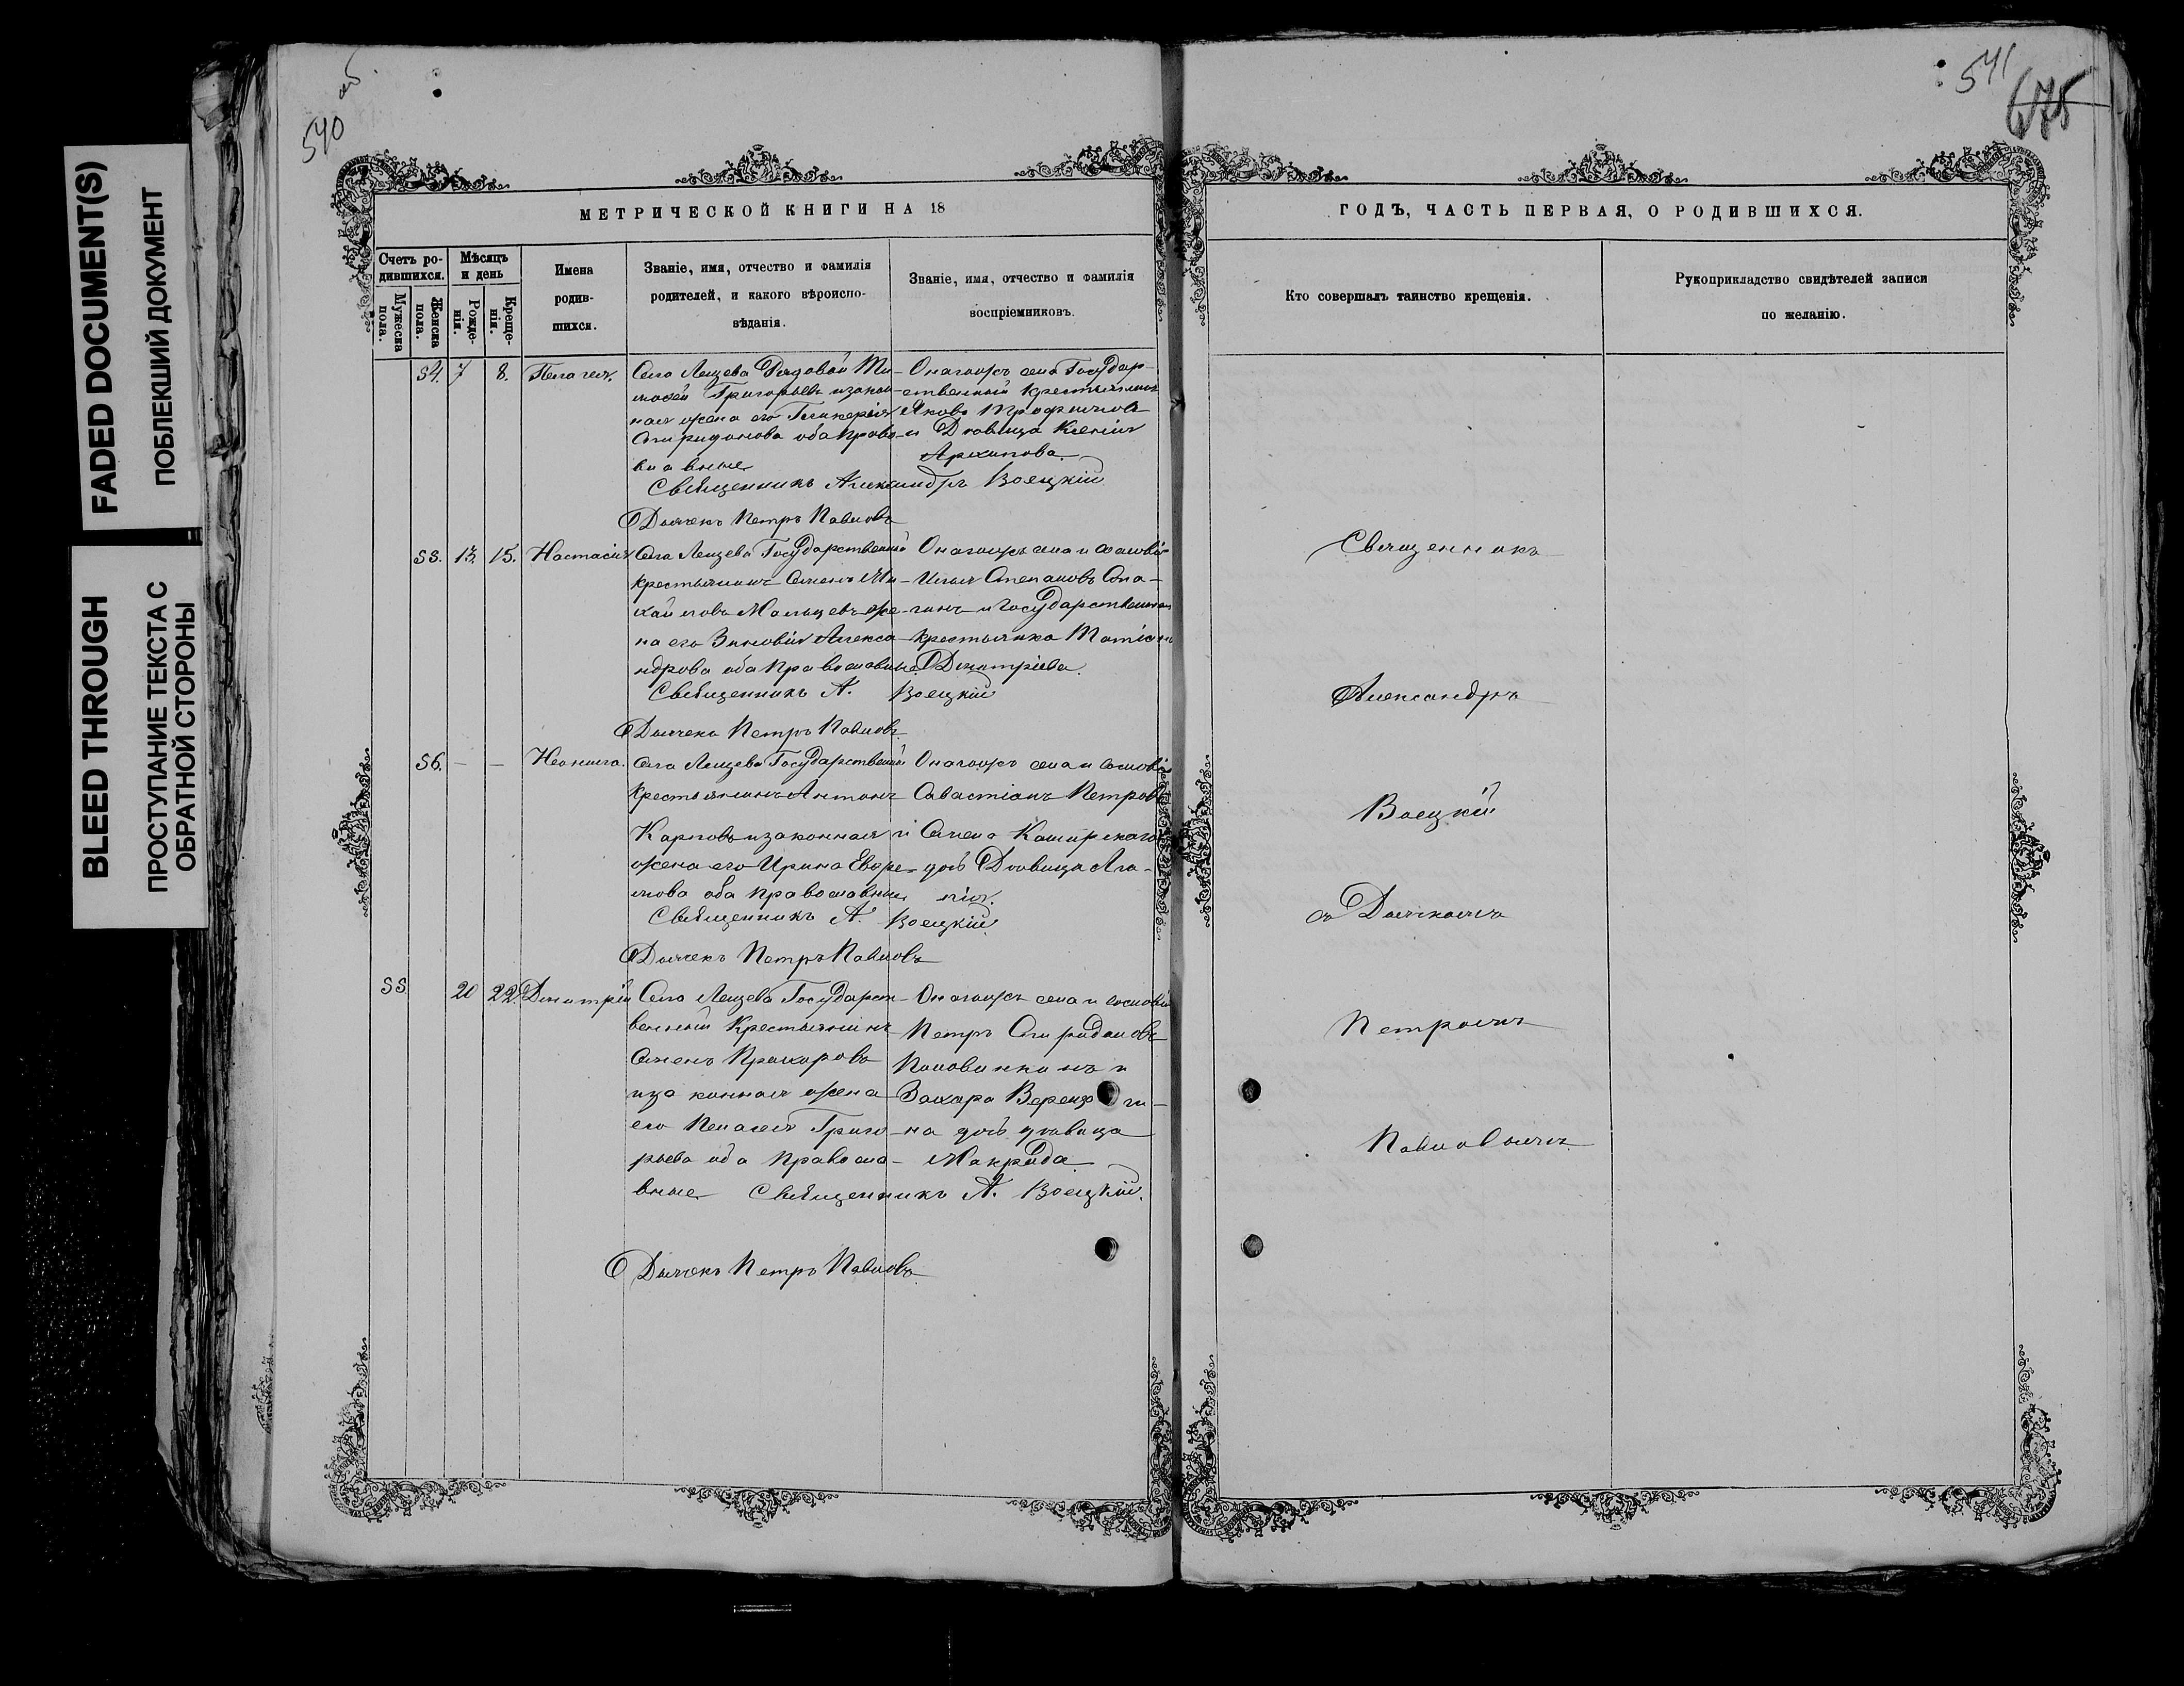 FADED DOCUMENT(S)
ПОБЛЕКШИЙ ДОКУМЕНТ
BLEED THROUGH
ПРОСТУПАНИЕ ТЕКСТА С
ОБРАТНОЙ СТОРОНЫ
540 об
МЕТРИЧЕСКОЙ КНИГИ НА 18
Счетъ ро-
дившихся.
Мужеска
пола.
Женска
пола.
Мѣсяцъ
и день
Рожде-
нія.
Креще-
нія.
Имена
родив-
шихся.
Званіе, имя, отчество и фамилія
родителей, и какого вѣроиспо-
вѣданія.
Званіе, имя, отчество и фамилія
воспріемниковъ.
54. 7 8. Пелагея.
Села Лещева Рядовой Ти-
мофей Григорьевъ и закон-
ная жена его Гликерія
Спиридонова оба право-
славные
Онагожъ села Государ-
ственный крестьянинъ
Яковъ Трофимовъ
и Дѣвица Ксенія
Архипова.
Священникъ Александръ Воецкій
Дьячекъ Петръ Павловъ
55. 13. 15. Настасія
Села Лещева Государственный
крестьянинъ Семенъ Ми-
хайловъ Мальцевъ же-
на его Зиновія Алекса-
ндрова оба православные
Онагожъ села и сословія
Илья Степановъ
и Государственная
крестьянка
Дмитріева.
Священникъ А. Воецкій
Дьячекъ Петръ Павловъ
56. — — Неонила.
Села Лещева Государственный
крестьянинъ Антонъ
Карповъ и законная
жена его Ирина Ефре-
мова оба православные
Онагожъ села и сословія
Савастіанъ Петровъ
и Семена
дочь Дѣвица Ага-
пія.
Священникъ А. Воецкій
Дьячекъ Петръ Павловъ
55 20 22 Дмитрій
Села Лещева Государст-
венный Крестьянинъ
Семенъ Прохоровъ
и законная жена
его Пелагея Григо-
рьева оба правосла-
вные
Онагожъ села и сословія
Петръ Спиридоновъ
Половинкинъ и
Захара
на дочь дѣвица
Макрида
Священникъ А. Воецкій.
Дьячекъ Петръ Павловъ
541
675
ГОДЪ, ЧАСТЬ ПЕРВАЯ, О РОДИВШИХСЯ.
Кто совершалъ таинство крещенія.
Рукоприкладство свидѣтелей записи
по желанію.
Священникъ
Александръ
Воецкій
съ Дьячкомъ
Петромъ
Павловымъ